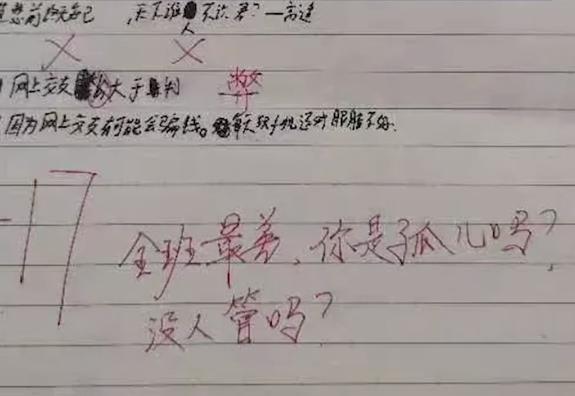 愁前路无知己 ,天下谁人不识君?—高适
网上交友 大于利 弊
因为网上交友有可能会骗钱。 天玩手机还对眼睛不好.
-17
全班最差,你是孤儿吗?
没人管吗?